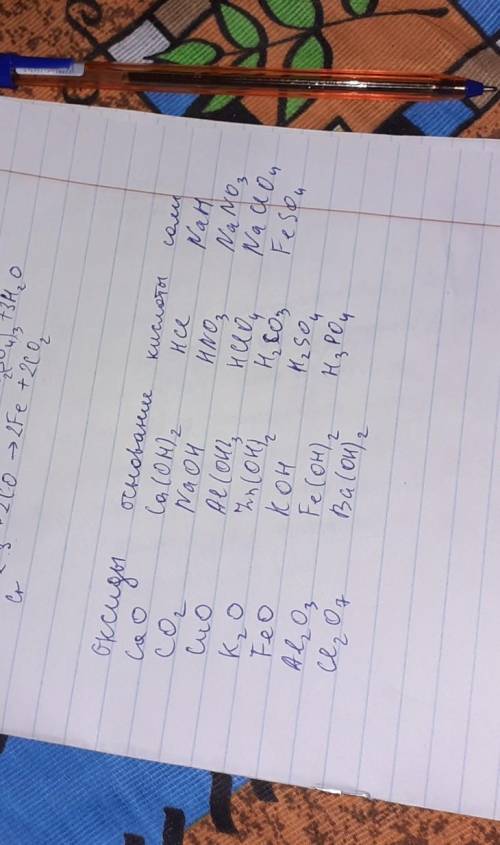 (SO₄)₃ + 3H₂O
+ 2CO → 2Fe + 2CO₂
оксиды основание кислоты соли
CaO Ca(OH)₂ HCl NaH
CO₂ NaOH HNO₃ NaNO₃
CuO Al(OH)₃ HClO₄ NaClO₄
K₂O Zn(OH)₂ H₂CO₃ FeSO₄
FeO KOH H₂SO₄
Al₂O₃ Fe(OH)₂ H₃PO₄
Cl₂O₇ Ba(OH)₂